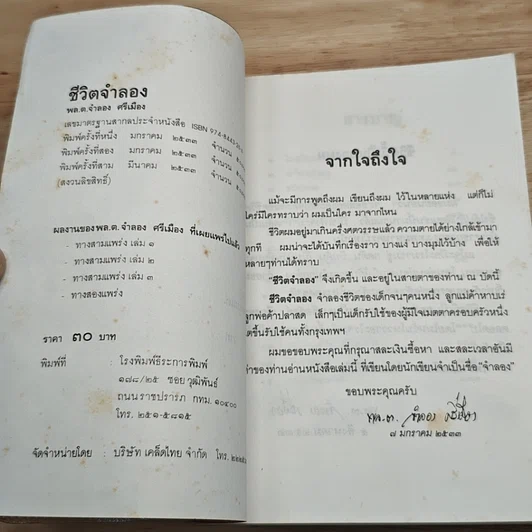 ชีวิตจำลอง
พล.ต.จำลอง ศรีเมือง
เลขมาตรฐานสากลประจำหนังสือ ISBN 974-8443-
พิมพ์ครั้งที่หนึ่ง มกราคม ๒๕๓๓ จำนวน
พิมพ์ครั้งที่สอง มกราคม ๒๕๓๓ จำนวน
พิมพ์ครั้งที่สาม มีนาคม ๒๕๓๓ จำนวน
(สงวนลิขสิทธิ์)
ผลงานของพล.ต.จำลอง ศรีเมือง ที่เผยแพร่ไปแล้ว
- ทางสามแพร่ง เล่ม ๑
- ทางสามแพร่ง เล่ม ๒
- ทางสามแพร่ง เล่ม ๓
- ทางสองแพร่ง
ราคา ๓๐ บาท
พิมพ์ที่ : โรงพิมพ์ธีระการพิมพ์
๑๗๘/๒๕ ซอยวุฒิพันธ์
ถนนราชปรารภ กทม. ๑๐๔๐๐
โทร. ๒๕๑-๕๘๑๕
จัดจำหน่ายโดย : บริษัท เคล็ดไทย จำกัด โทร.
จากใจถึงใจ
แม้จะมีการพูดถึงผม เขียนถึงผม ไว้ในหลายแห่ง แต่ก็ไม่
ใคร่มีใครทราบว่า ผมเป็นใคร มาจากไหน
ชีวิตผมอยู่มาเกินครึ่งศตวรรษแล้ว ความตายได้ย่างใกล้เข้ามา
ทุกที ผมน่าจะได้บันทึกเรื่องราว บางแง่ บางมุมไว้บ้าง เพื่อให้
หลายๆท่านได้ทราบ
"ชีวิตจำลอง" จึงเกิดขึ้น และอยู่ในสายตาของท่าน ณ บัดนี้
ชีวิตจำลอง จำลองชีวิตของเด็กจนๆคนหนึ่ง ลูกแม่ค้าหาบเร่
ลูกพ่อค้าปลาสด เล็กๆเป็นเด็กรับใช้ของผู้มีใจเมตตาครอบครัวหนึ่ง
โตขึ้นรับใช้คนทั้งกรุงเทพฯ
ผมขอขอบพระคุณที่กรุณาสละเงินซื้อหา และสละเวลาอันมี
ค่าของท่านอ่านหนังสือเล่มนี้ ที่เขียนโดยนักเขียนจำเป็นชื่อ "จำลอง"
ขอบพระคุณครับ
พล.ต. จำลอง ศรีเมือง
๗ มกราคม ๒๕๓๓